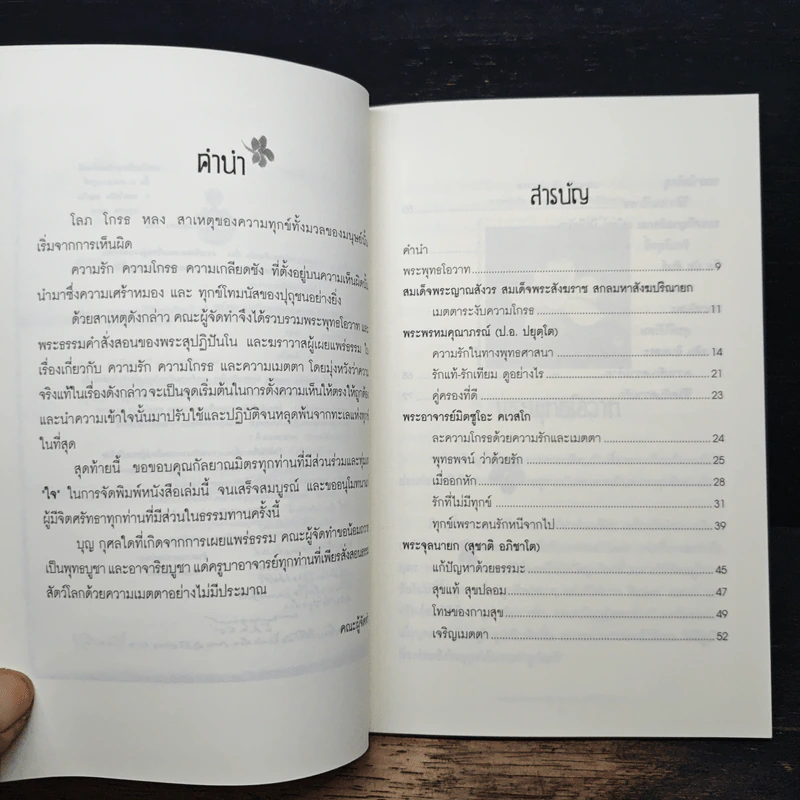 คำนำ
โลภ โกรธ หลง สาเหตุของความทุกข์ทั้งมวลของมนุษย์นั้น
เริ่มจากการเห็นผิด
ความรัก ความโกรธ ความเกลียดชัง ที่ตั้งอยู่บนความเห็นผิดนั้น
นำมาซึ่งความเศร้าหมอง และ ทุกข์โทมนัสของปุถุชนอย่างยิ่ง
ด้วยสาเหตุดังกล่าว คณะผู้จัดทำจึงได้รวบรวมพระพุทธโอวาท และ
พระธรรมคำสั่งสอนของพระสุปฏิปันโน และฆราวาสผู้เผยแพร่ธรรม ใน
เรื่องเกี่ยวกับ ความรัก ความโกรธ และความเมตตา โดยมุ่งหวังว่าความ
จริงแท้ในเรื่องดังกล่าวจะเป็นจุดเริ่มต้นในการตั้งความเห็นให้ตรงให้ถูกต้อง
และนำความเข้าใจนั้นมาปรับใช้และปฏิบัติจนหลุดพ้นจากทะเลแห่งทุกข์
ในที่สุด
สุดท้ายนี้ ขอขอบคุณกัลยาณมิตรทุกท่านที่มีส่วนร่วมและทุ่มเท
"ใจ" ในการจัดพิมพ์หนังสือเล่มนี้ จนเสร็จสมบูรณ์ และขออนุโมทนา
ผู้มีจิตศรัทธาทุกท่านที่มีส่วนในธรรมทานครั้งนี้
บุญ กุศลใดที่เกิดจากการเผยแพร่ธรรม คณะผู้จัดทำขอน้อมถวาย
เป็นพุทธบูชา และอาจาริยบูชา แด่ครูบาอาจารย์ทุกท่านที่เพียรสั่งสอนธรรม
สัตว์โลกด้วยความเมตตาอย่างไม่มีประมาณ
คณะผู้จัดทำ
สารบัญ
คำนำ
พระพุทธโอวาท 9
สมเด็จพระญาณสังวร สมเด็จพระสังฆราช สกลมหาสังฆปริณายก
เมตตาระงับความโกรธ 11
พระพรหมคุณาภรณ์ (ป.อ. ปยุตฺโต)
ความรักในทางพุทธศาสนา 14
รักแท้-รักเทียม ดูอย่างไร 21
คู่ครองที่ดี 23
พระอาจารย์มิตซูโอะ คเวสโก
ละความโกรธด้วยความรักและเมตตา 24
พุทธพจน์ ว่าด้วยรัก 25
เมื่ออกหัก 28
รักที่ไม่มีทุกข์ 31
ทุกข์เพราะคนรักหนีจากไป 39
พระจุลนายก (สุชาติ อภิชาโต)
แก้ปัญหาด้วยธรรมะ 45
สุขแท้ สุขปลอม 47
โทษของกามสุข 49
เจริญเมตตา 52